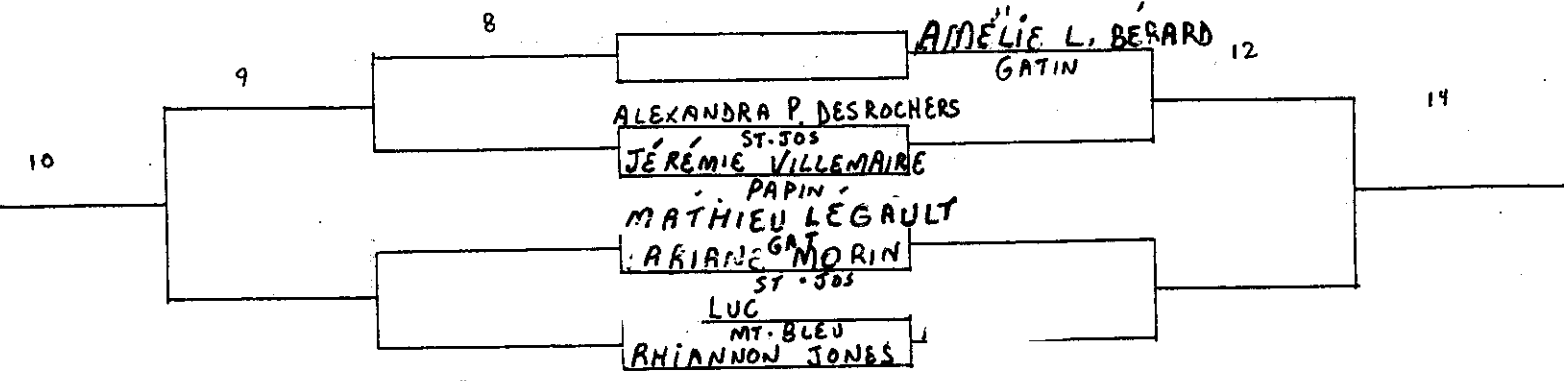 8
AMÉLIE L. BÉRARD
GATIN
12
9
14
ALEXANDRA P. DESROCHERS
ST-JOS
10
JÉRÉMIE VILLEMAIRE
PAPIN
MATHIEU LÉGAULT
GAT
ARIANE MORIN
ST-JOS
LUC
MT-BLEU
RHIANNON JONES